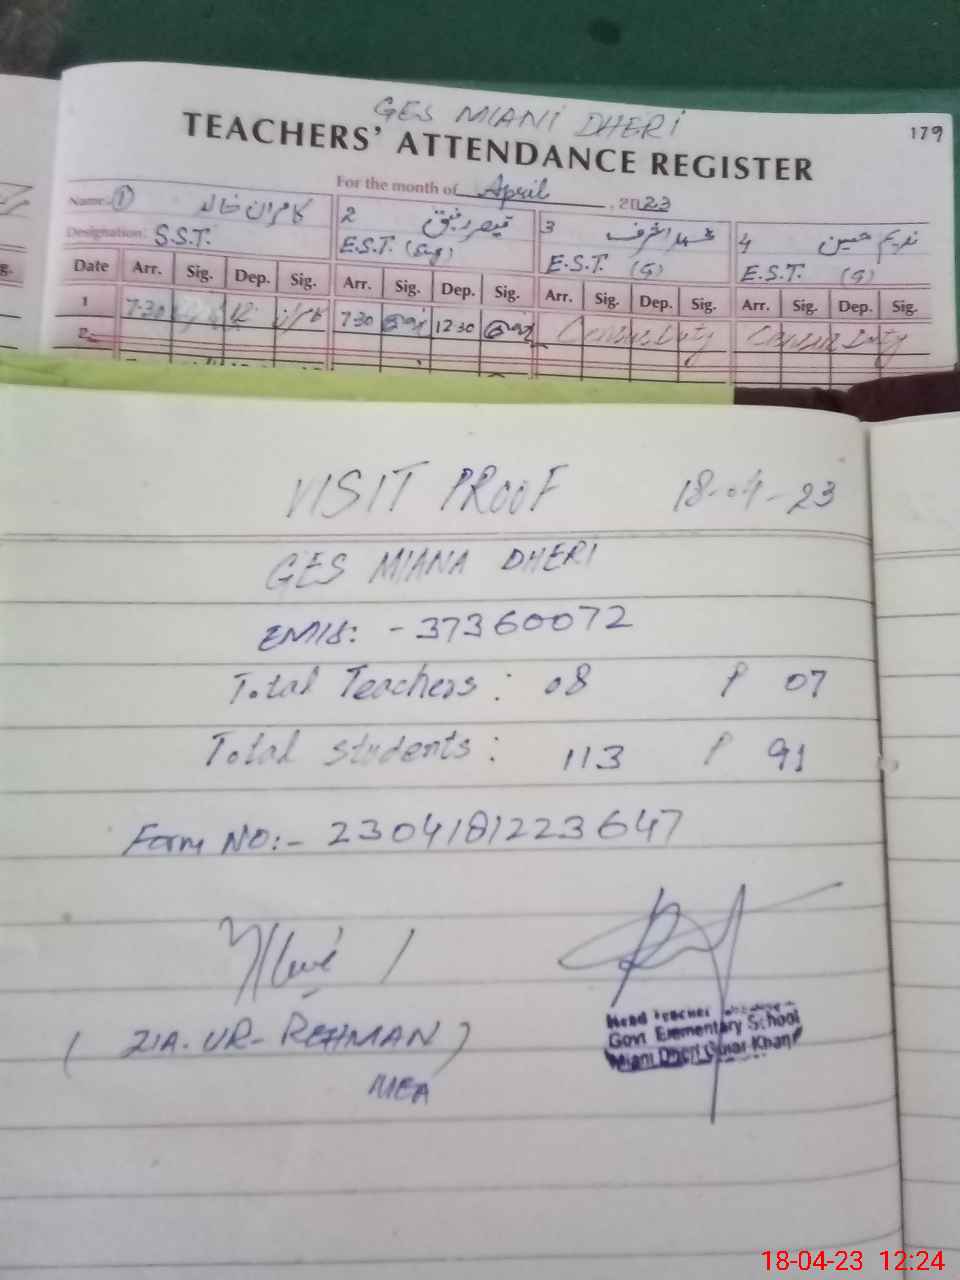 GES MIANI DHERI
179
TEACHERS' ATTENDANCE REGISTER
For the month of April, 2023
Name: 1 کامران خالد 2 قیصر رفیق 3 شہزاد اشرف 4 ندیم حسین
Designation: S.S.T. E.S.T. E.S.T. (G) E.S.T. (G)
Date Arr. Sig. Dep. Sig. Arr. Sig. Dep. Sig. Arr. Sig. Dep. Sig. Arr. Sig. Dep. Sig.
1 7-30 7-30 12-30 Census Duty Census Duty
2
VISIT PROOF 18-04-23
GES MIANA DHERI
EMIS: -37360072
Total Teachers: 08 P 07
Total Students: 113 P 91
Form NO:- 2304181223647
(ZIA-UR-REHMAN)
MEA
Head Teacher
Govt Elementary School
Miani Dheri Gujar Khan
18-04-23 12:24